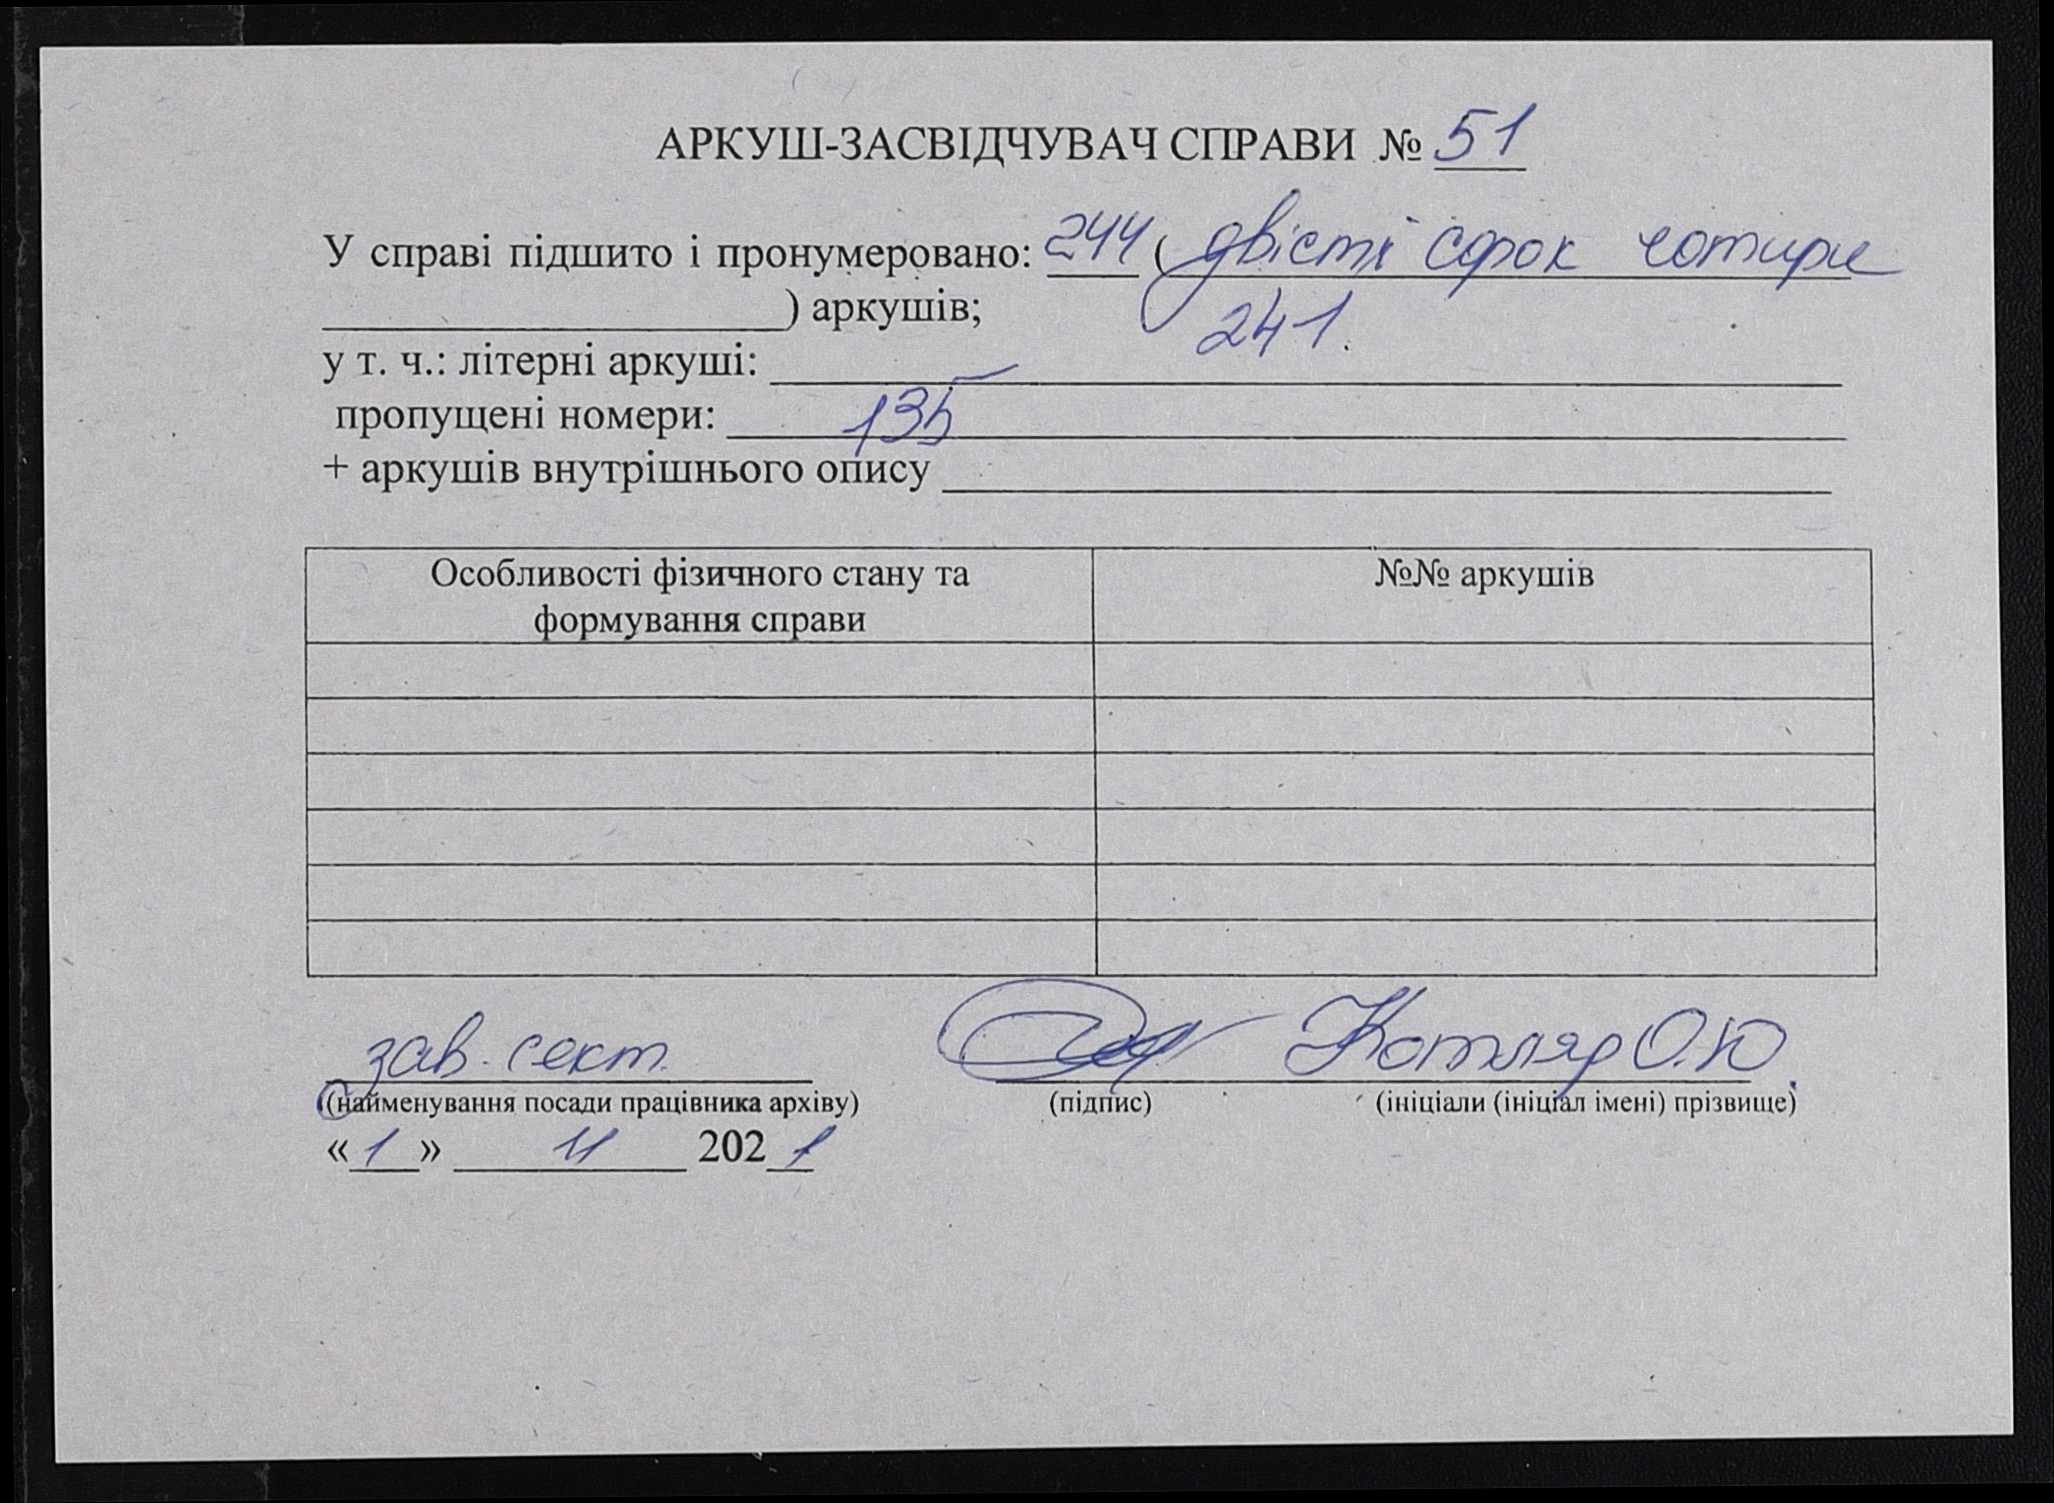 АРКУШ-ЗАСВІДЧУВАЧ СПРАВИ № 51
У справі підшито і пронумеровано: 244 ( двісті сорок чотири
) аркушів; 241.
у т. ч.: літерні аркуші: –
пропущені номери: 135
+ аркушів внутрішнього опису
Особливості фізичного стану та формування справи №№ аркушів
зав. сект. Котляр О.Ю.
(найменування посади працівника архіву) (підпис) (ініціали (ініціал імені) прізвище)
«1» 11 2021